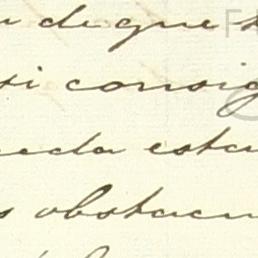 de que s
si consig
eda esta
s obstacu